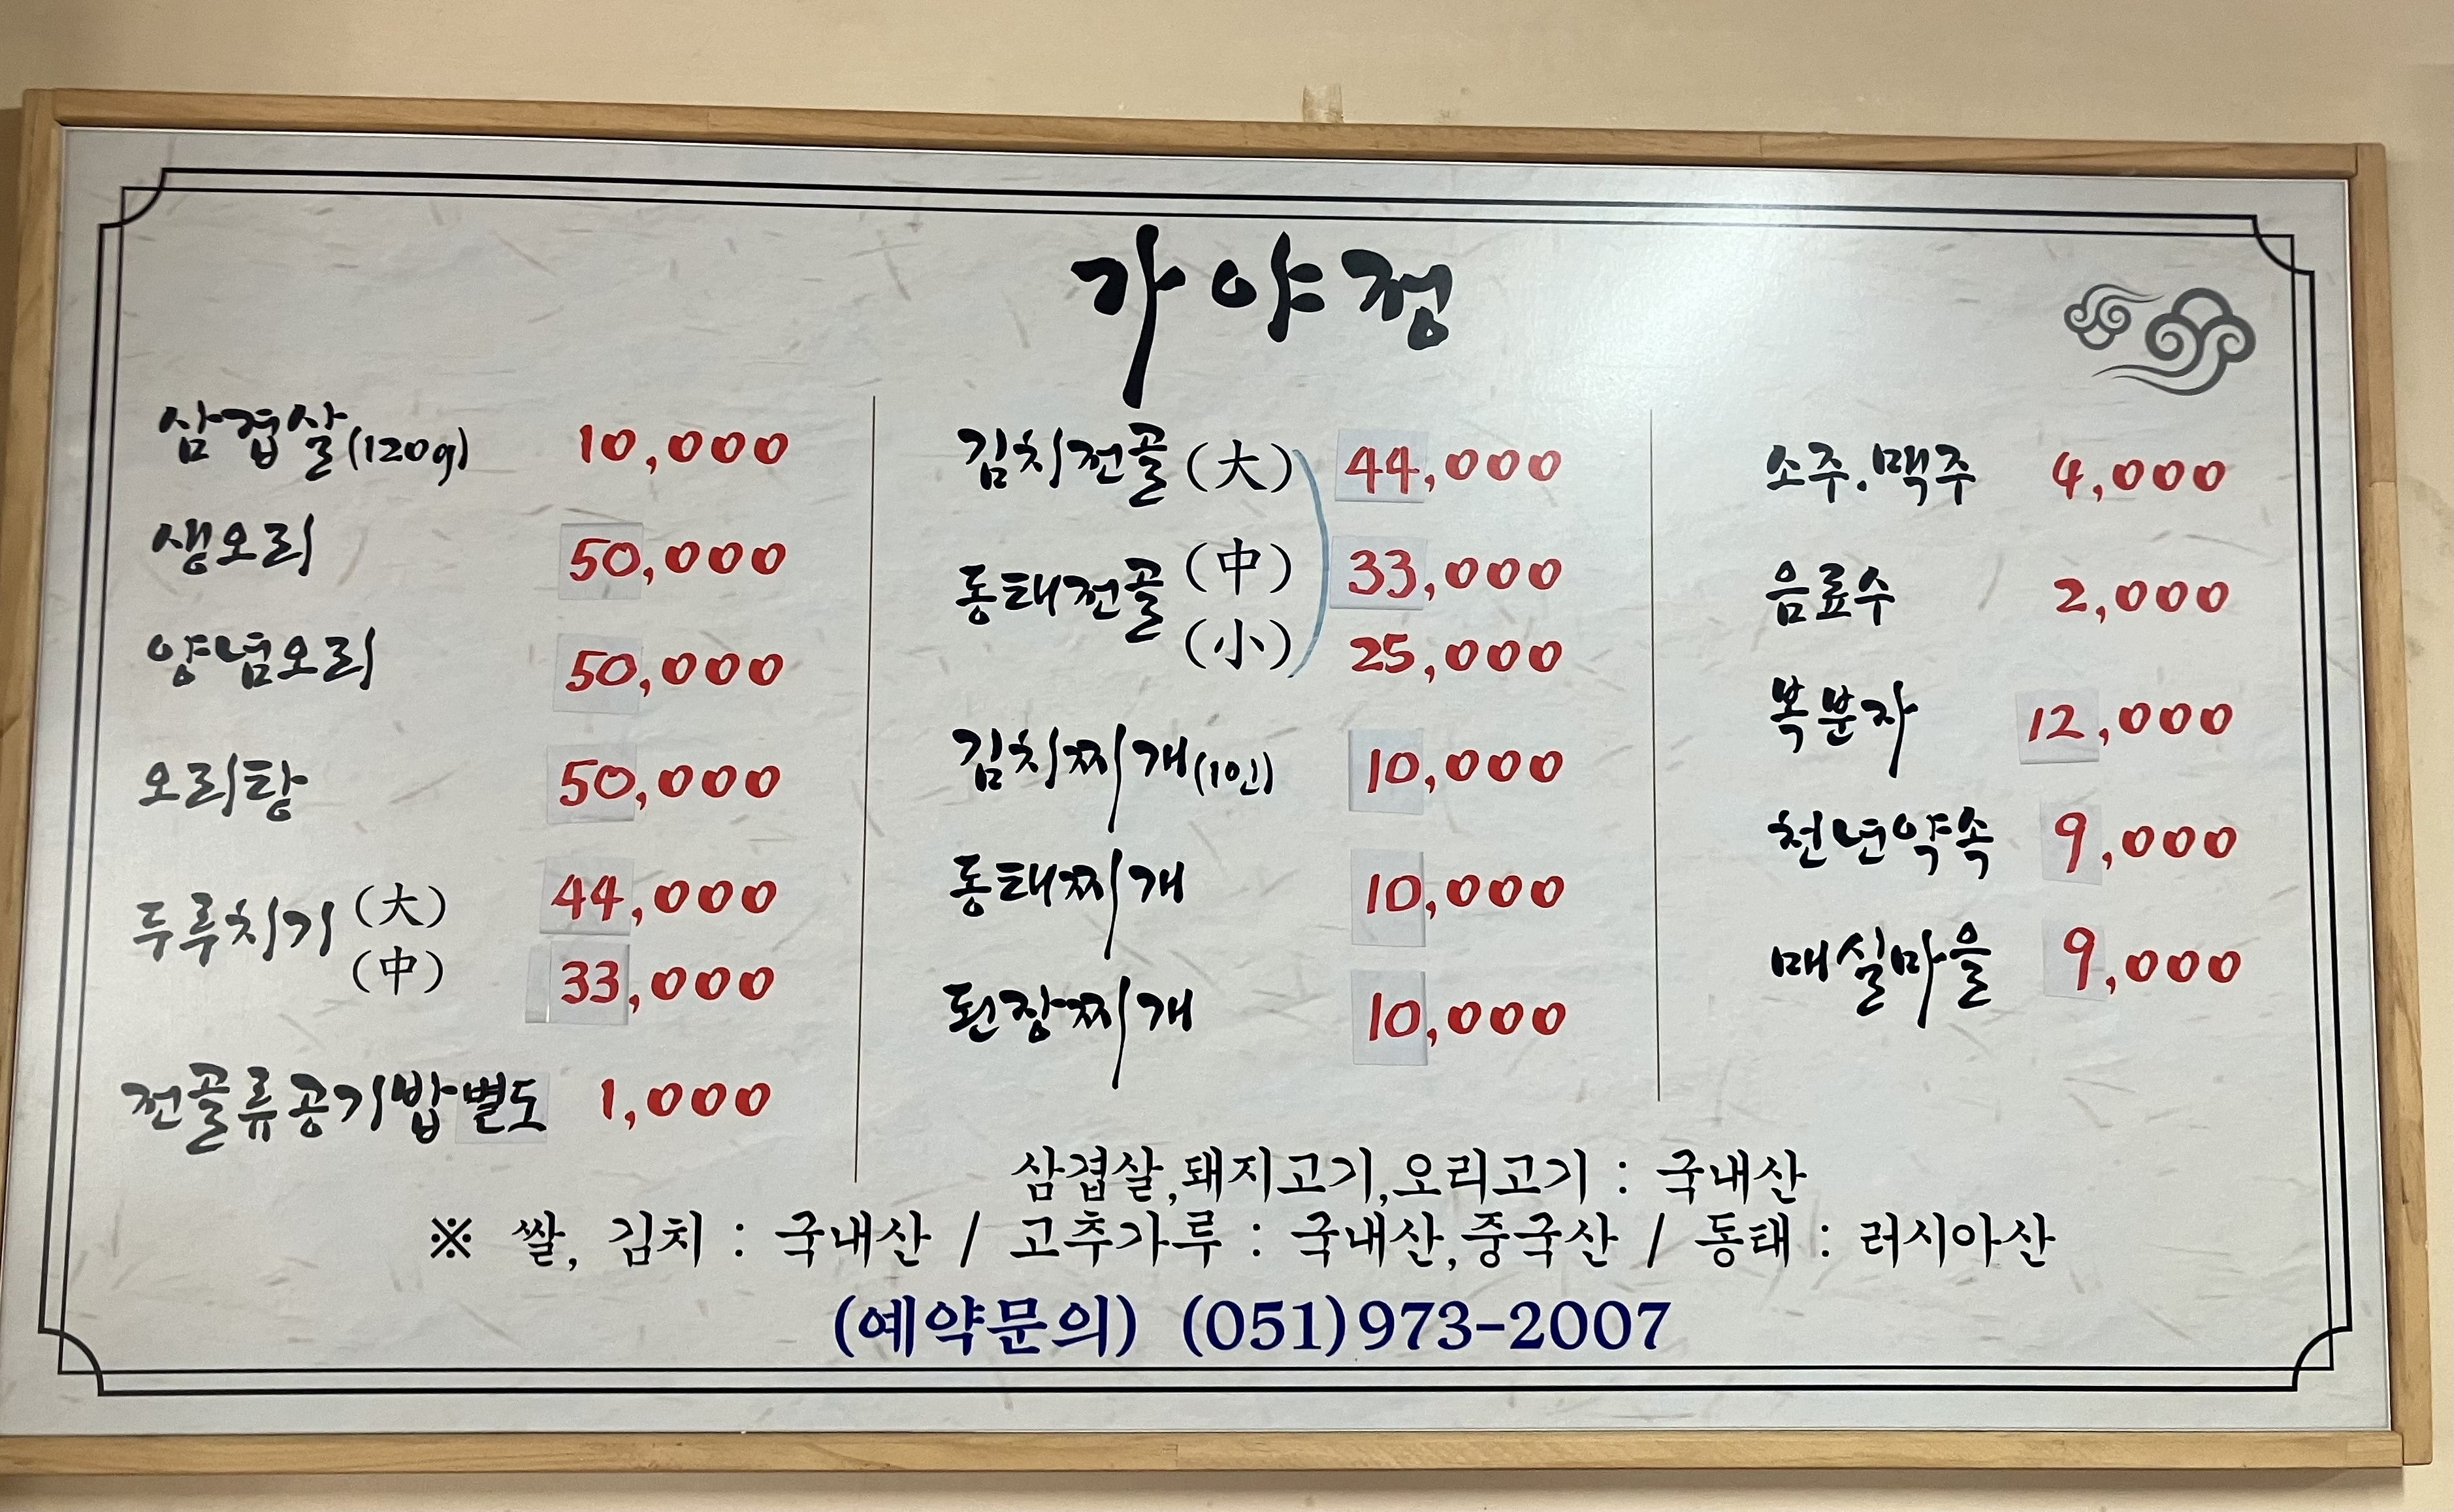 가야정
삼겹살(120g) 10,000
생오리 50,000
양념오리 50,000
오리탕 50,000
두루치기 (大) 44,000
(中) 33,000
전골류공기밥별도 1,000
김치전골 (大) 44,000
동태전골 (中) 33,000
(小) 25,000
김치찌개(1인) 10,000
동태찌개 10,000
된장찌개 10,000
소주.맥주 4,000
음료수 2,000
복분자 12,000
천년약속 9,000
매실마을 9,000
삼겹살,돼지고기,오리고기 : 국내산
※ 쌀, 김치 : 국내산 / 고추가루 : 국내산,중국산 / 동태 : 러시아산
(예약문의) (051)973-2007